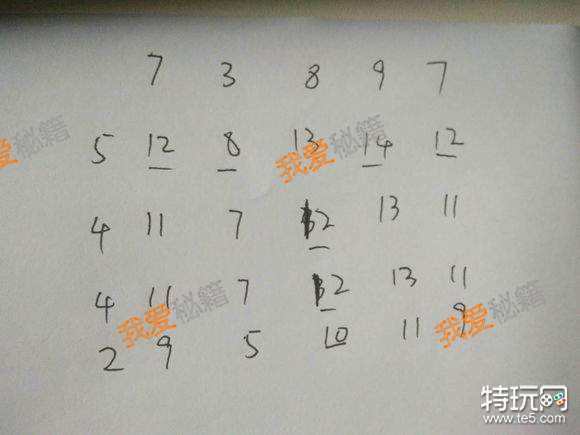 7 3 8 9 7
5 12 8 13 14 12
4 11 7 12 13 11
4 11 7 12 13 11
2 9 5 10 11 9
我爱秘籍
我爱秘籍
我爱秘籍
我爱秘籍
特玩网
www.te5.com